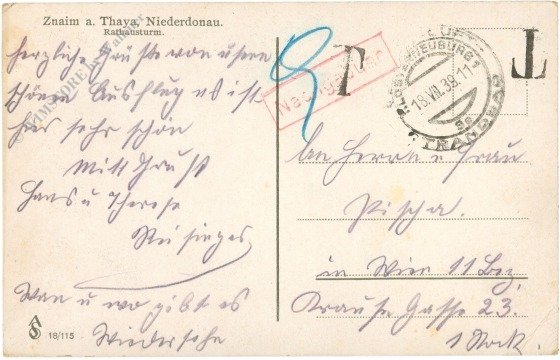 Znaim a. Thaya, Niederdonau.
Rathausturm.
herzliche Grüße von unsern
schönen Ausflug es ist
hier sehr schön
Mitt Gruß
Hans u Therese
Wan u wo gibt es
Wiedersehn
18/115
Nachgebühr
T
T
KLOSTERNEUBURG 1
18.VII.39.11
STRANDBAD
An Herrn u Frau
Pischa.
in Wien 11 Bez.
Krause Gasse 23.
1 Stock.